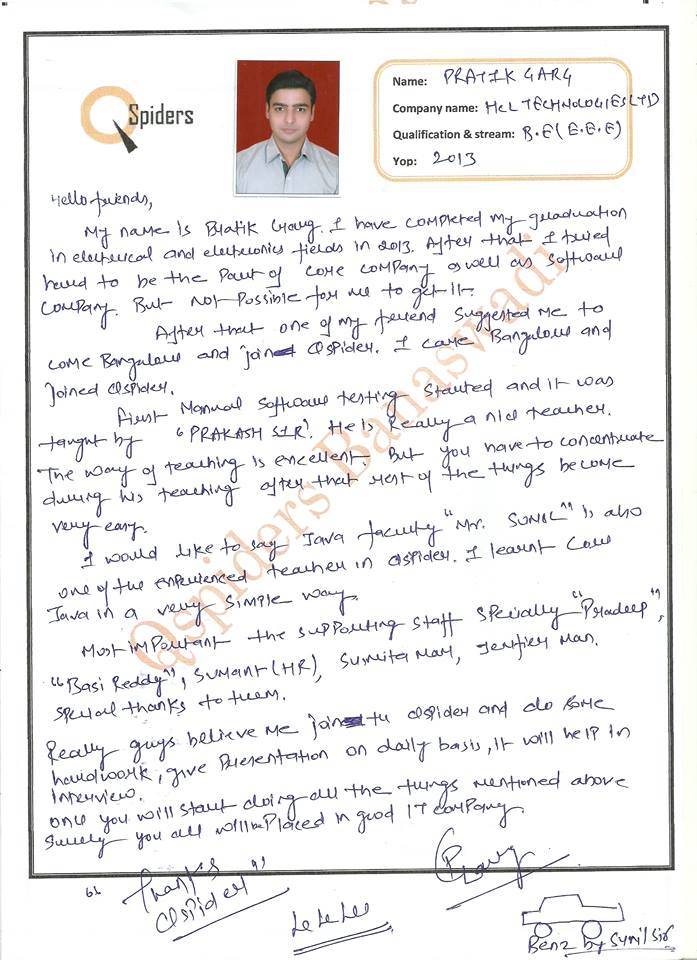 QSpiders
Name: PRATIK GARG
Company name: HCL TECHNOLOGIES LTD
Qualification & stream: B.E (E.E.E)
Yop: 2013
Hello friends,
My name is Pratik Garg. I have completed my graduation
in electrical and electronics fields in 2013. After that I tried
hard to be the Part of core company as well as software
company. But not possible for me to get it.
After that one of my friend suggested me to
come Bangalore and join QSpider. I came Bangalore and
joined QSpider.
First Manual software testing started and it was
taught by "PRAKASH SIR". He is really a nice teacher.
The way of teaching is excellent. But you have to concentrate
during his teaching after that rest of the things become
very easy.
I would like to say Java faculty "Mr. SUNIL" is also
one of the experienced teacher in QSpider. I learnt Core
Java in a very simple way.
Most important the supporting staff specially "Pradeep",
"Basi Reddy", Sumant (HR), Sumita Mam, Jenifier Mam.
special thanks to them.
Really guys believe me join QSpider and do some
hardwork, give Presentation on daily basis, it will help in
interview.
Once you will start doing all the things mentioned above
surely you all will be Placed in good IT company.
" Thanks
QSpider "
Benz by Sunil Sir
Qspiders Banaswadi